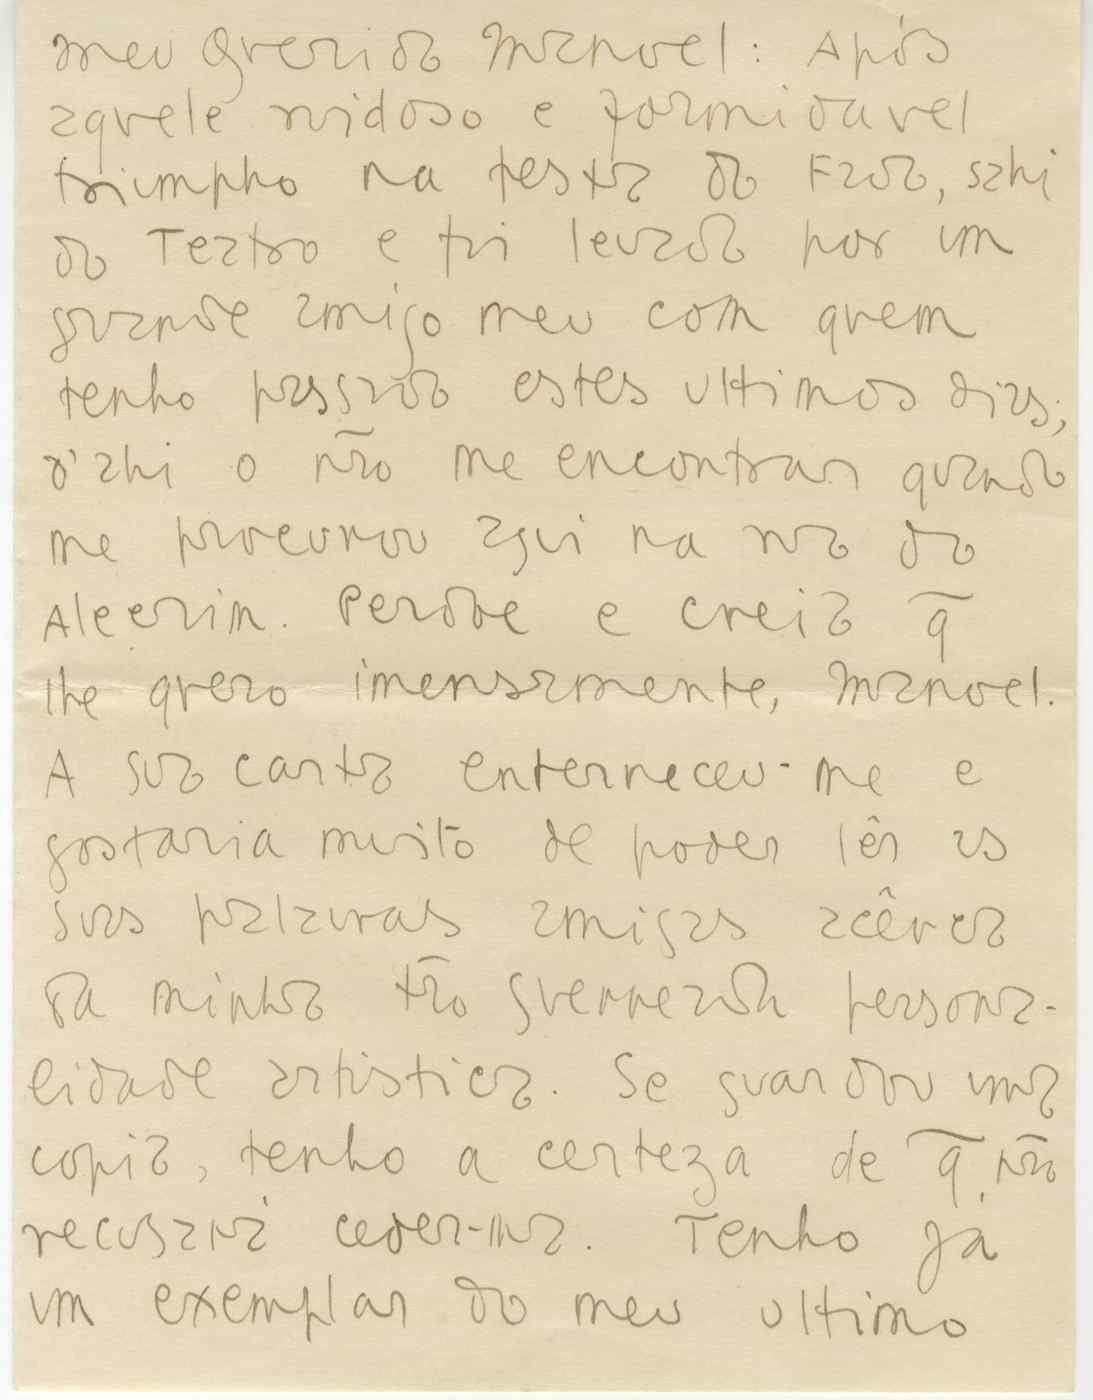 meu Querido Manoel: Após
aquele ruidoso e formidavel
triumpho na festa do Fado, sahi
do Teatro e fui levado por um
grande amigo meu com quem
tenho passado estes ultimos dias;
d'ahi o não me encontrar quando
me procurou aqui na rua do
Alecrim. Perdoe e creia q̃
lhe quero imensamente, Manoel.
A sua carta enterneceu-me e
gostaria muito de poder lêr as
suas palavras amigas acêrca
da minha tão guerreada persona-
lidade artistica. Se guardou uma
copia, tenho a certeza de q̃ não
recusará ceder-ma. Tenho já
um exemplar do meu ultimo